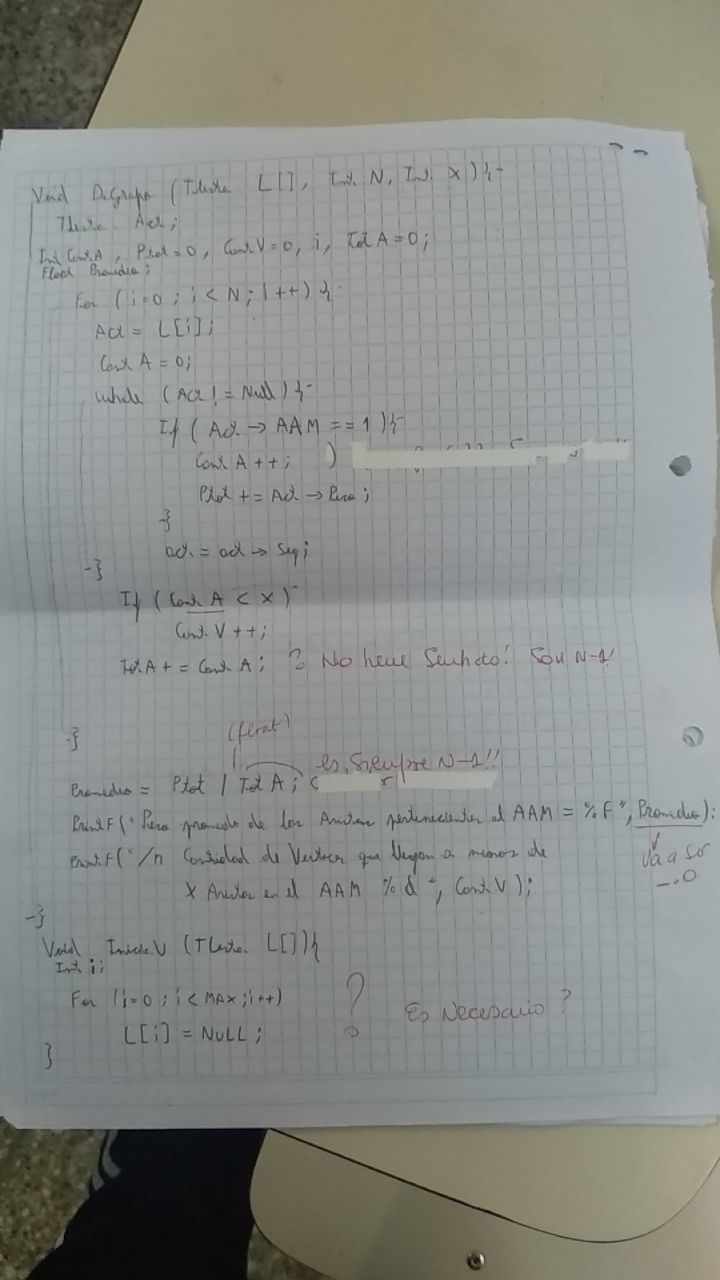 Void DGrafo (TLista L[], Int N, Int X) {
TLista Act;
Int Cont.A, Ptot=0, Cont V=0, i, Tot A=0;
Float Promedio;
For (i=0; i<N; i++) {
Act = L[i];
Cont A = 0;
while (Act != Null) {
If (Act → AAM == 1) {
Cont A ++; )
Ptot += Act → Peso;
}
act = act → Sig;
}
If (Cont A < X)
Cont. V++;
Tot A += Cont A; ? No tiene Sentido! Son N-1!
}
(float)
es Siempre N-1!!
Promedio = Ptot / Tot A;
PrintF("Peso promedio de las Aristas pertenecientes al AAM = %F", Promedio);
Va a ser
_.0
Print.F("/n Cantidad de Vertices que llegan a menos de
X Aristas en el AAM %d", Cont V);
}
Void Inicia.V (TLista. L[]){
Int i;
For (i=0; i<MAX; i++) ?
Es Necesario?
L[i] = NULL;
}